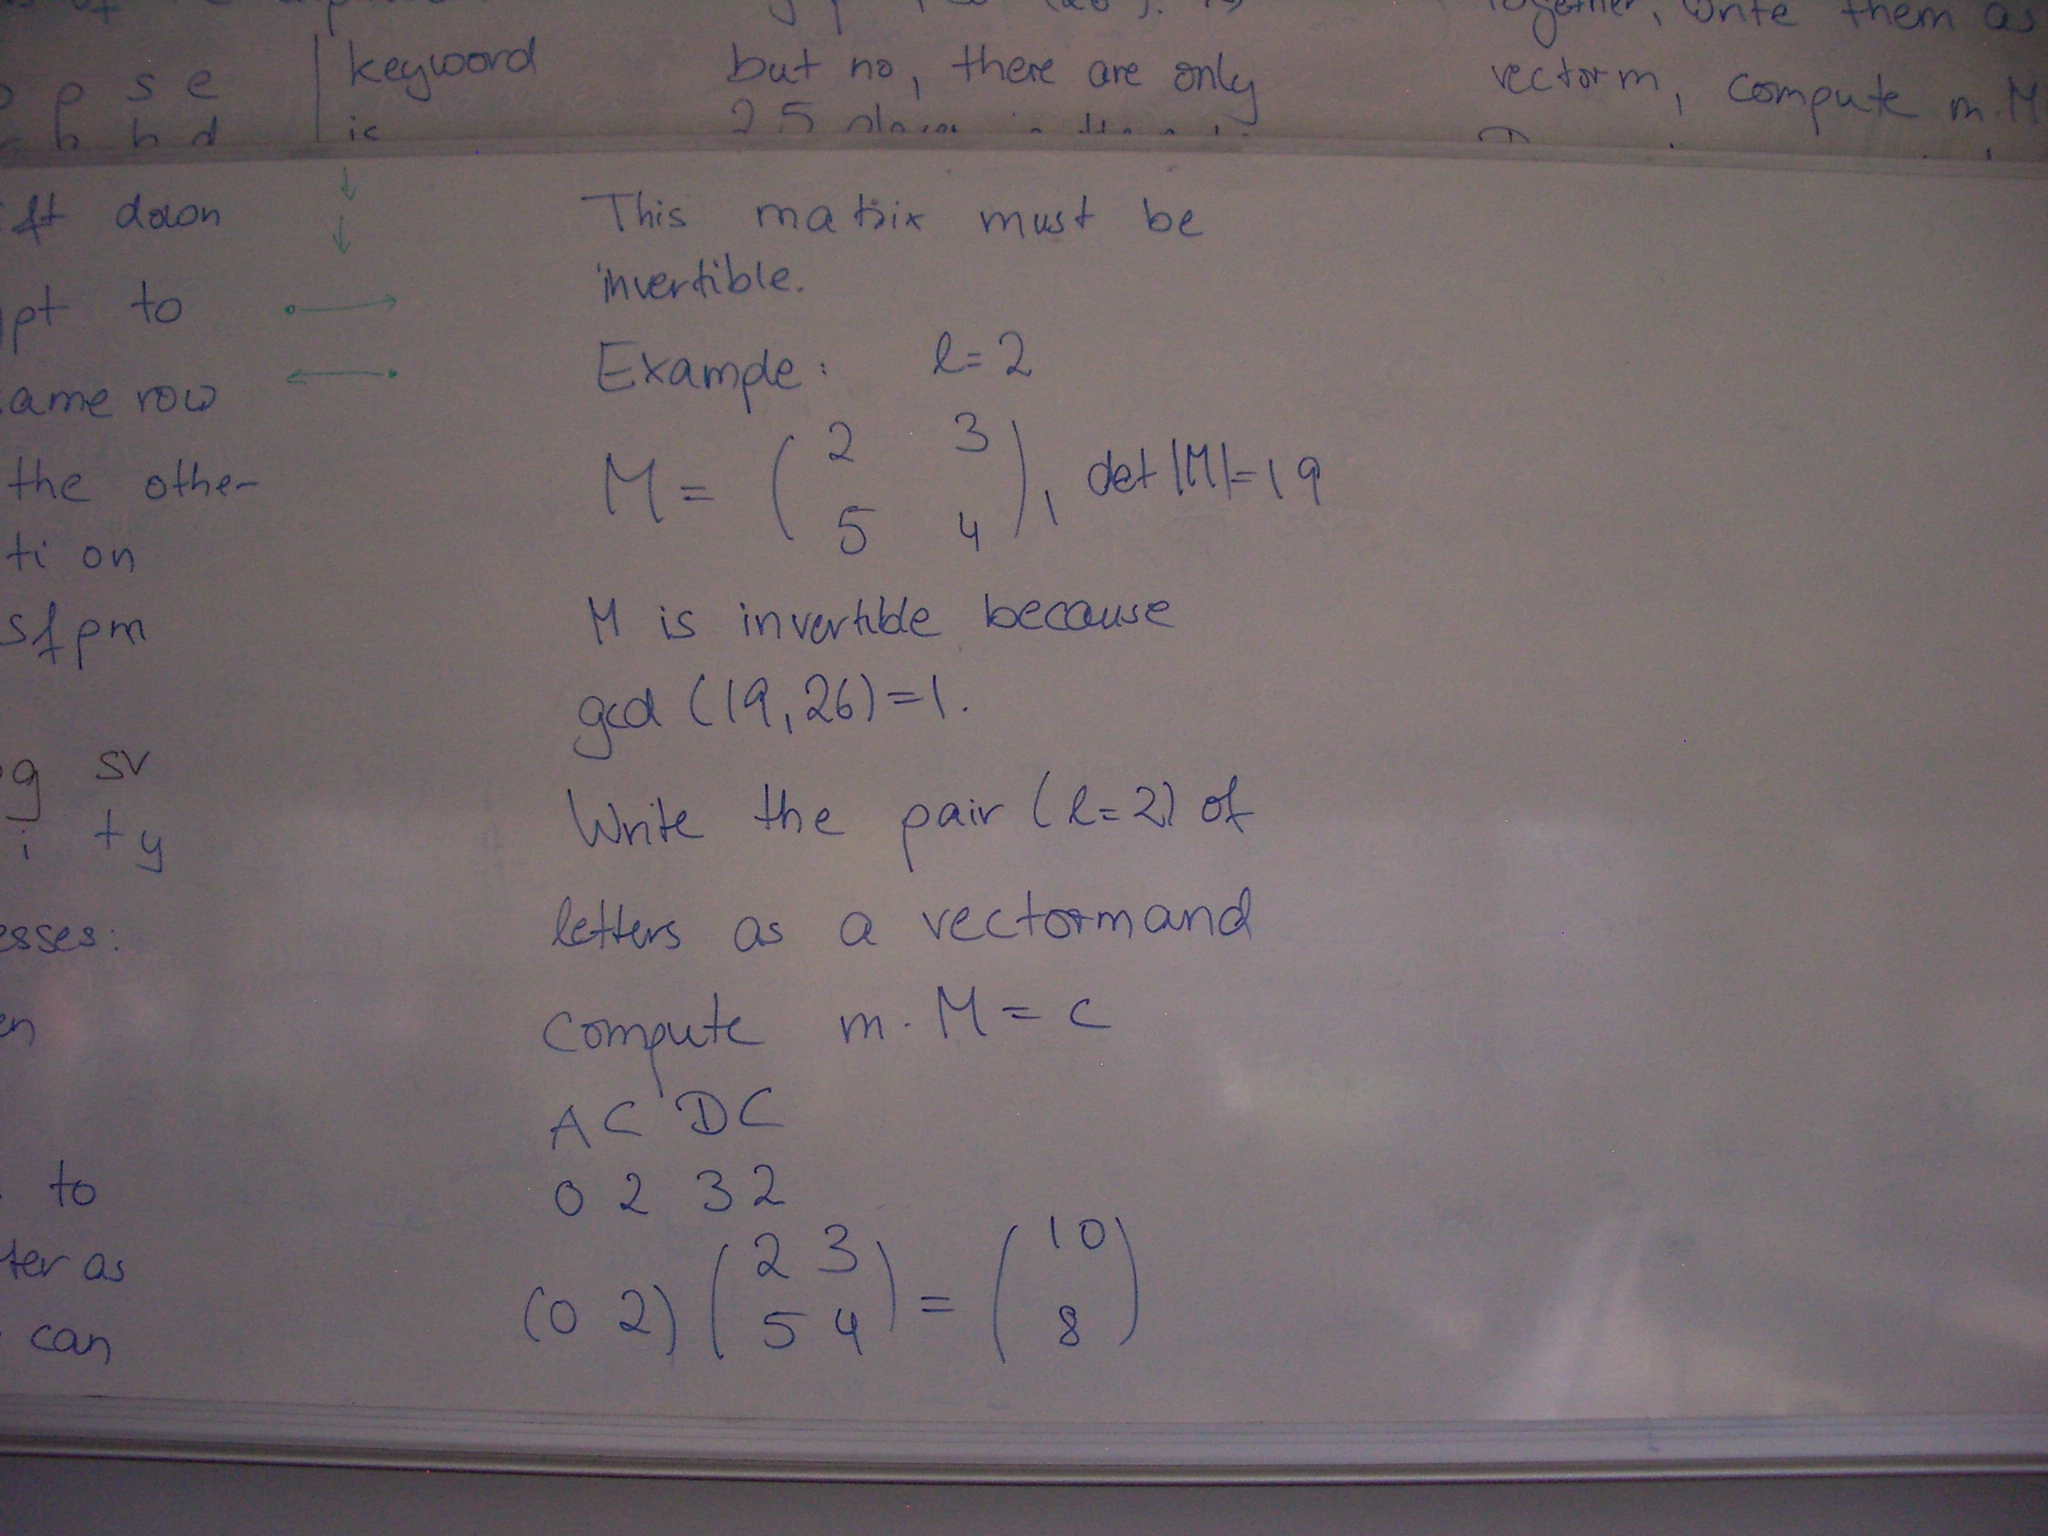 p s e
h h d
keyword
is
but no, there are only
25
them as
vector m, compute m.M
down
pt to
ame row
the other
tion
sfpm
g sv
i ty
esses:
en
to
ter as
can
This matrix must be
invertible.
Example: l=2
M = ( 2 3
5 4 ), det |M|=19
M is invertible because
gcd (19,26)=1.
Write the pair (l=2) of
letters as a vector m and
compute m. M = c
AC DC
0 2 3 2
(0 2) ( 2 3 = ( 10
5 4 ) 8 )